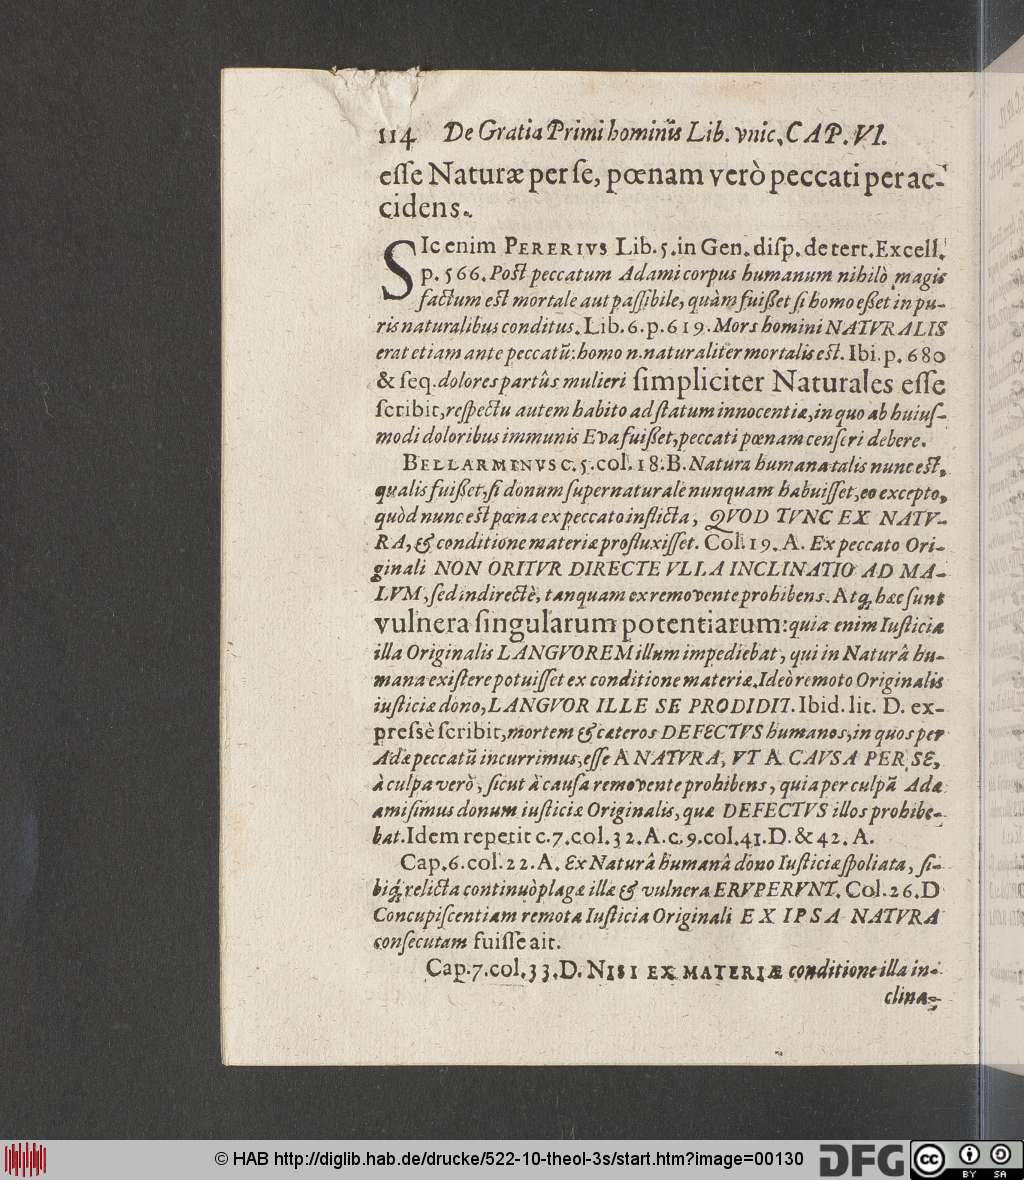 114 De Gratia Primi hominis Lib. vnic. CAP. VI.
eſſe Naturæ per ſe, pœnam verò peccati per ac-
cidens.
SIc enim PERERIVS Lib. 5. in Gen. diſp. de tert. Excell.
p. 566. Poſt peccatum Adami corpus humanum nihilò magis
factum eſt mortale aut paſſibile, quàm fuißet ſi homo eßet in pu-
ris naturalibus conditus. Lib. 6. p. 619. Mors homini NATVRALIS
erat etiam ante peccatũ: homo n. naturaliter mortalis eſt. Ibi. p. 680
& ſeq. dolores partûs mulieri ſimpliciter Naturales eſſe
ſcribit, reſpectu autem habito ad ſtatum innocentiæ, in quo ab huiuſ-
modi doloribus immunis Eva fuißet, peccati pœnam cenſeri debere.
BELLARMINVS c. 5. col. 18. B. Natura humana talis nunc eſt,
qualis fuißet, ſi donum ſupernaturale nunquam habuiſſet, eo excepto,
quòd nunc eſt pœna ex peccato inflicta, QVOD TVNC EX NATV-
RA, & conditione materiæ profluxiſſet. Col. 19. A. Ex peccato Ori-
ginali NON ORITVR DIRECTE VLLA INCLINATIO AD MA-
LVM, ſed indirectè, tanquam ex removente prohibens. Atq́ hæc ſunt
vulnera ſingularum potentiarum: quia enim Iuſticia
illa Originalis LANGVOREM illum impediebat, qui in Naturâ hu-
mana exiſtere potuiſſet ex conditione materiæ. Ideò remoto Originalis
iuſticiæ dono, LANGVOR ILLE SE PRODIDIT. Ibid. lit. D. ex-
preſsè ſcribit, mortem & cæteros DEFECTVS humanos, in quos per
Adæ peccatũ incurrimus, eſſe A NATVRA, VT A CAVSA PER SE,
à culpa verò, ſicut à cauſa removente prohibens, quia per culpã Adæ
amiſimus donum iuſticiæ Originalis, quæ DEFECTVS illos prohibe-
bat. Idem repetit c. 7. col. 32. A. c. 9. col. 41. D. & 42. A.
Cap. 6. col. 22. A. Ex Naturâ humanâ dono Iuſticiæ ſpoliata, ſi-
biq́ relicta continuò plagæ illæ & vulnera ERVPERVNT. Col. 26. D
Concupiſcentiam remota Iuſticia Originali EX IPSA NATVRA
conſecutam fuiſſe ait.
Cap. 7. col. 33. D. NISI EX MATERIÆ conditione illa in-
clina-
© HAB http://diglib.hab.de/drucke/522-10-theol-3s/start.htm?image=00130
DFG
cc BY SA